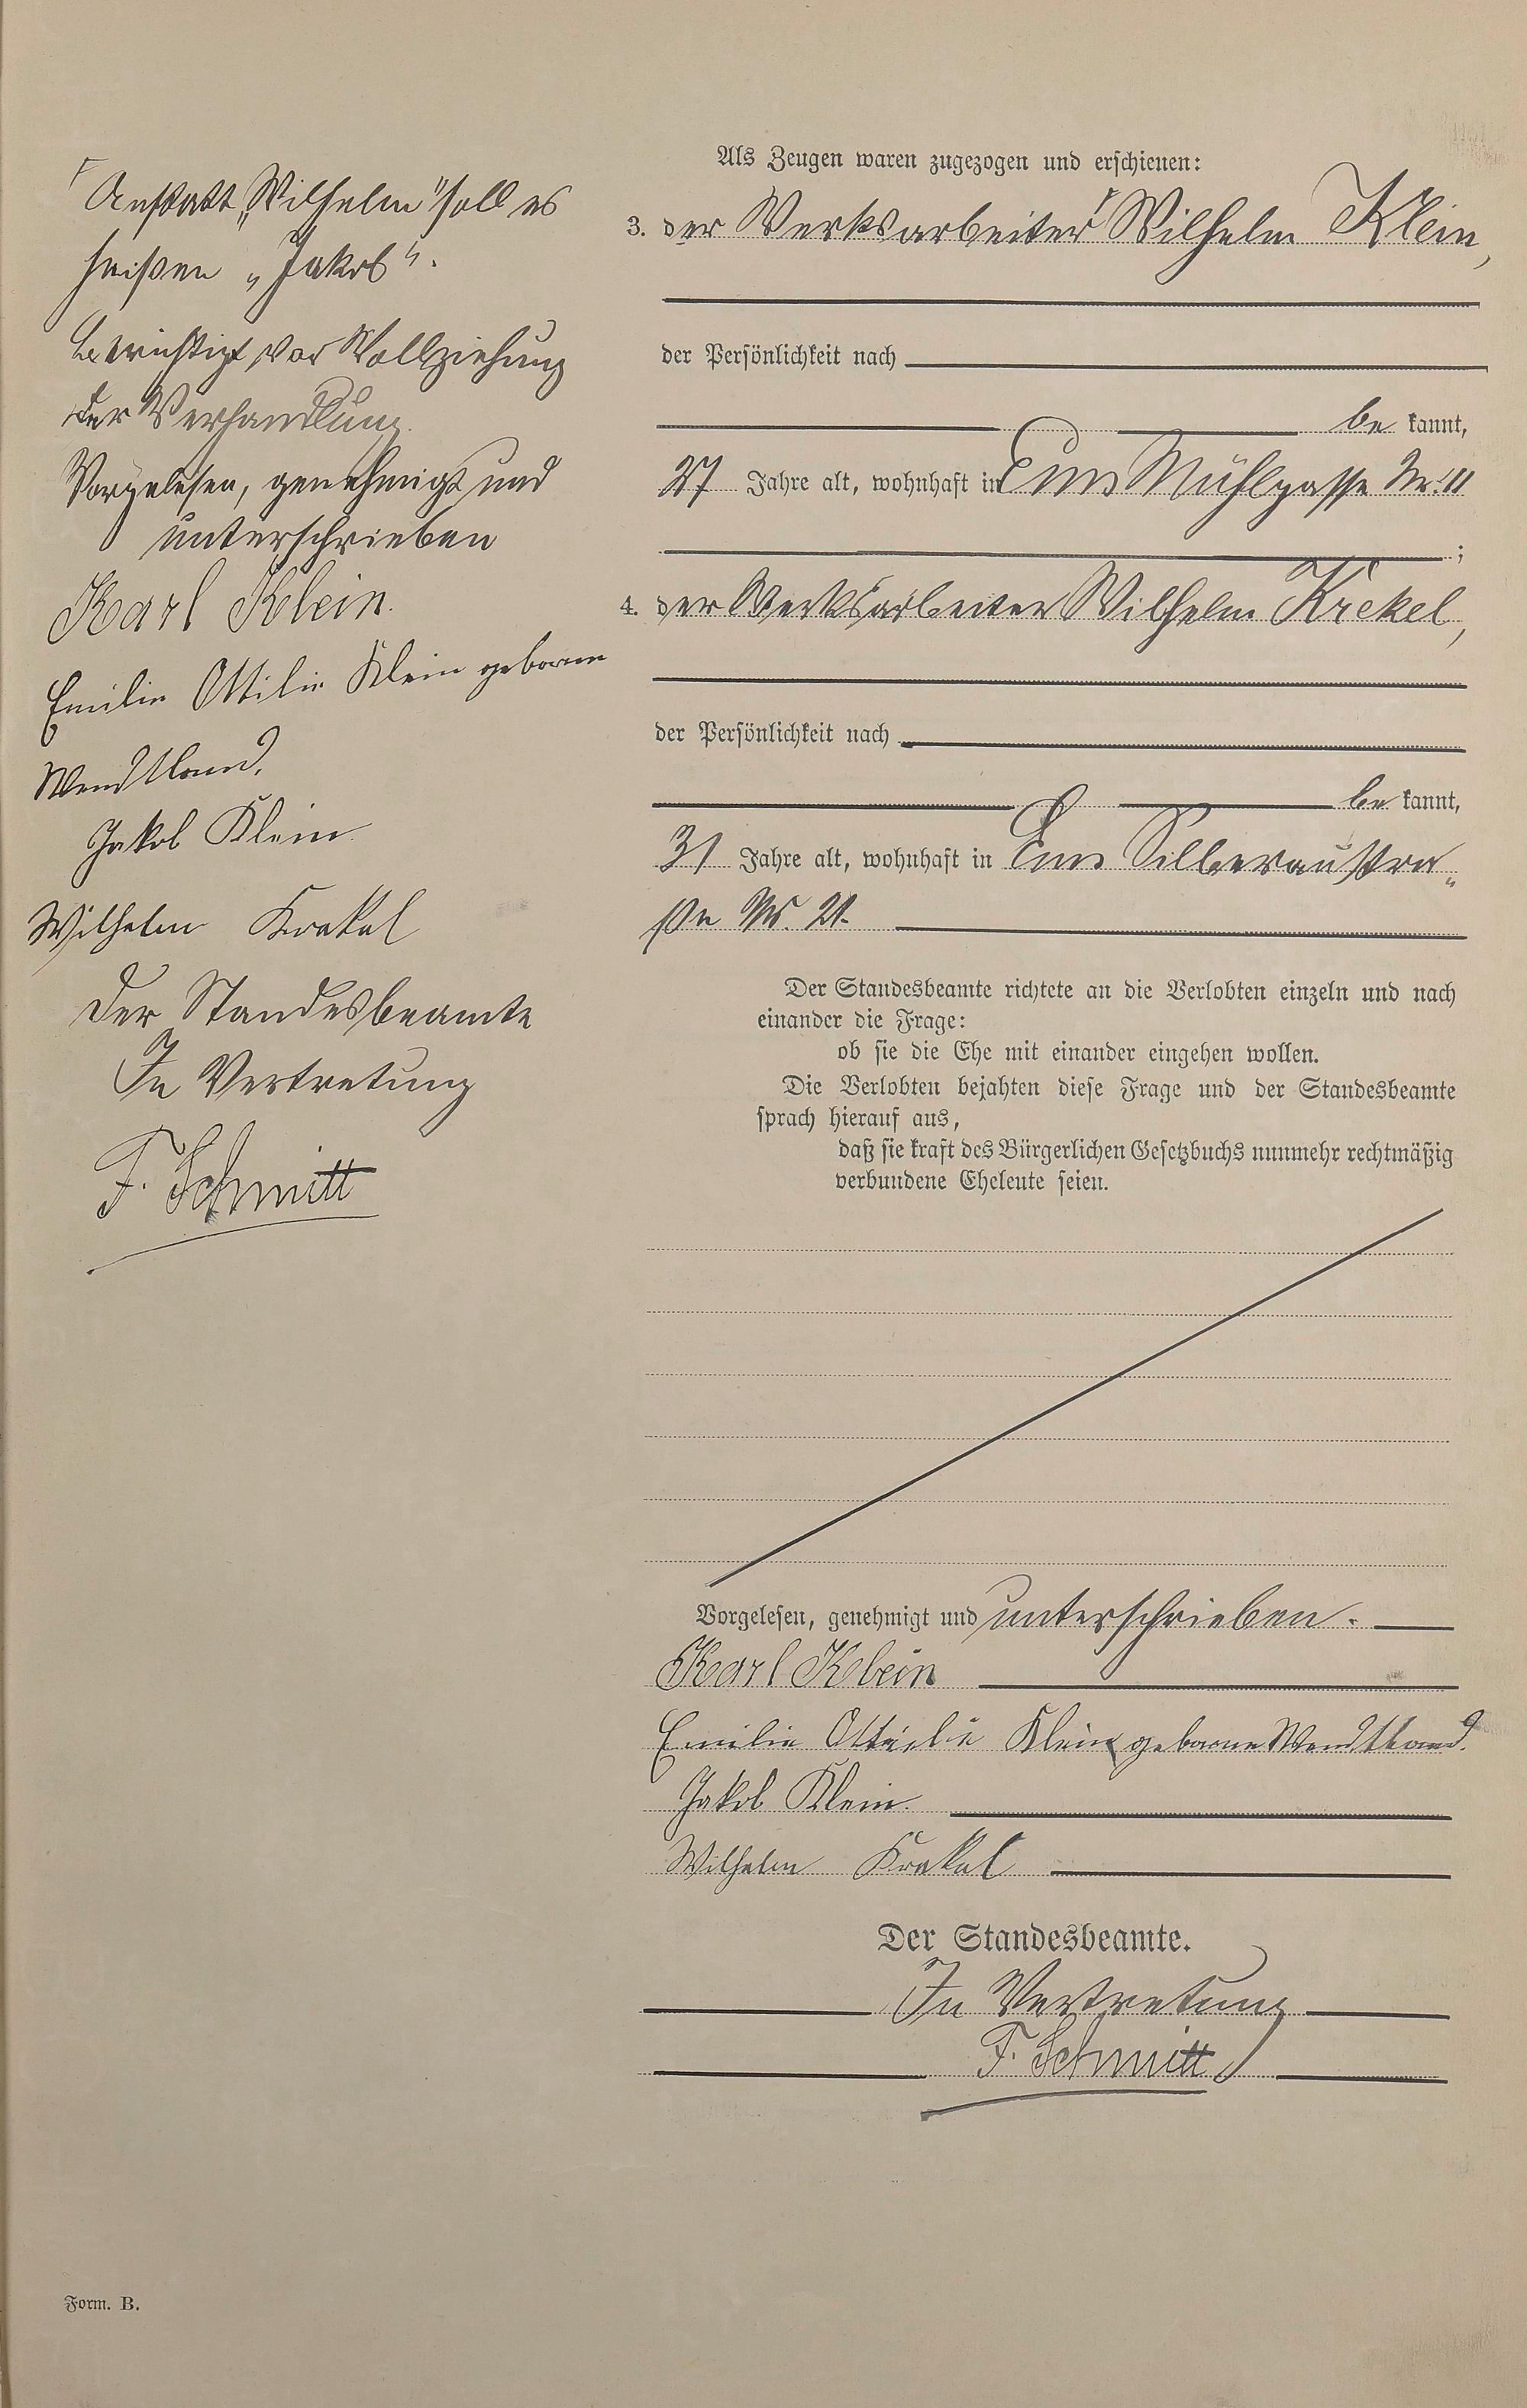 ⌈Anstatt „Wilhelm" soll es
heißen „Jakob".
Berichtigt vor Vollziehung
der Verhandlung.
Vorgelesen, genehmigt und
unterschrieben
Karl Klein.
Emilie Ottilie Klein geborene
Wendtland.
Jakob Klein
Wilhelm Krekel
Der Standesbeamte
In Vertretung
F. Schmitt
Als Zeugen waren zugezogen und erschienen:
3. der Werksarbeiter ⌈Wilhelm Klein,
der Persönlichkeit nach
be kannt,
27 Jahre alt, wohnhaft in Ems Mühlgasse Nr. 11
;
4. der Werksarbeiter Wilhelm Krekel,
der Persönlichkeit nach
be kannt,
31 Jahre alt, wohnhaft in Ems Silberaustra„
ße Nr. 21.
Der Standesbeamte richtete an die Verlobten einzeln und nach
einander die Frage:
ob sie die Ehe mit einander eingehen wollen.
Die Verlobten bejahten diese Frage und der Standesbeamte
sprach hierauf aus,
daß sie kraft des Bürgerlichen Gesetzbuchs nunmehr rechtmäßig
verbundene Eheleute seien.
Vorgelesen, genehmigt und unterschrieben.
Karl Klein
Emilie Ottielie Klein geborne Wendtland.
Jakob Klein.
Wilhelm Krekel
Der Standesbeamte.
In Vertretung
F. Schmitt
Form. B.